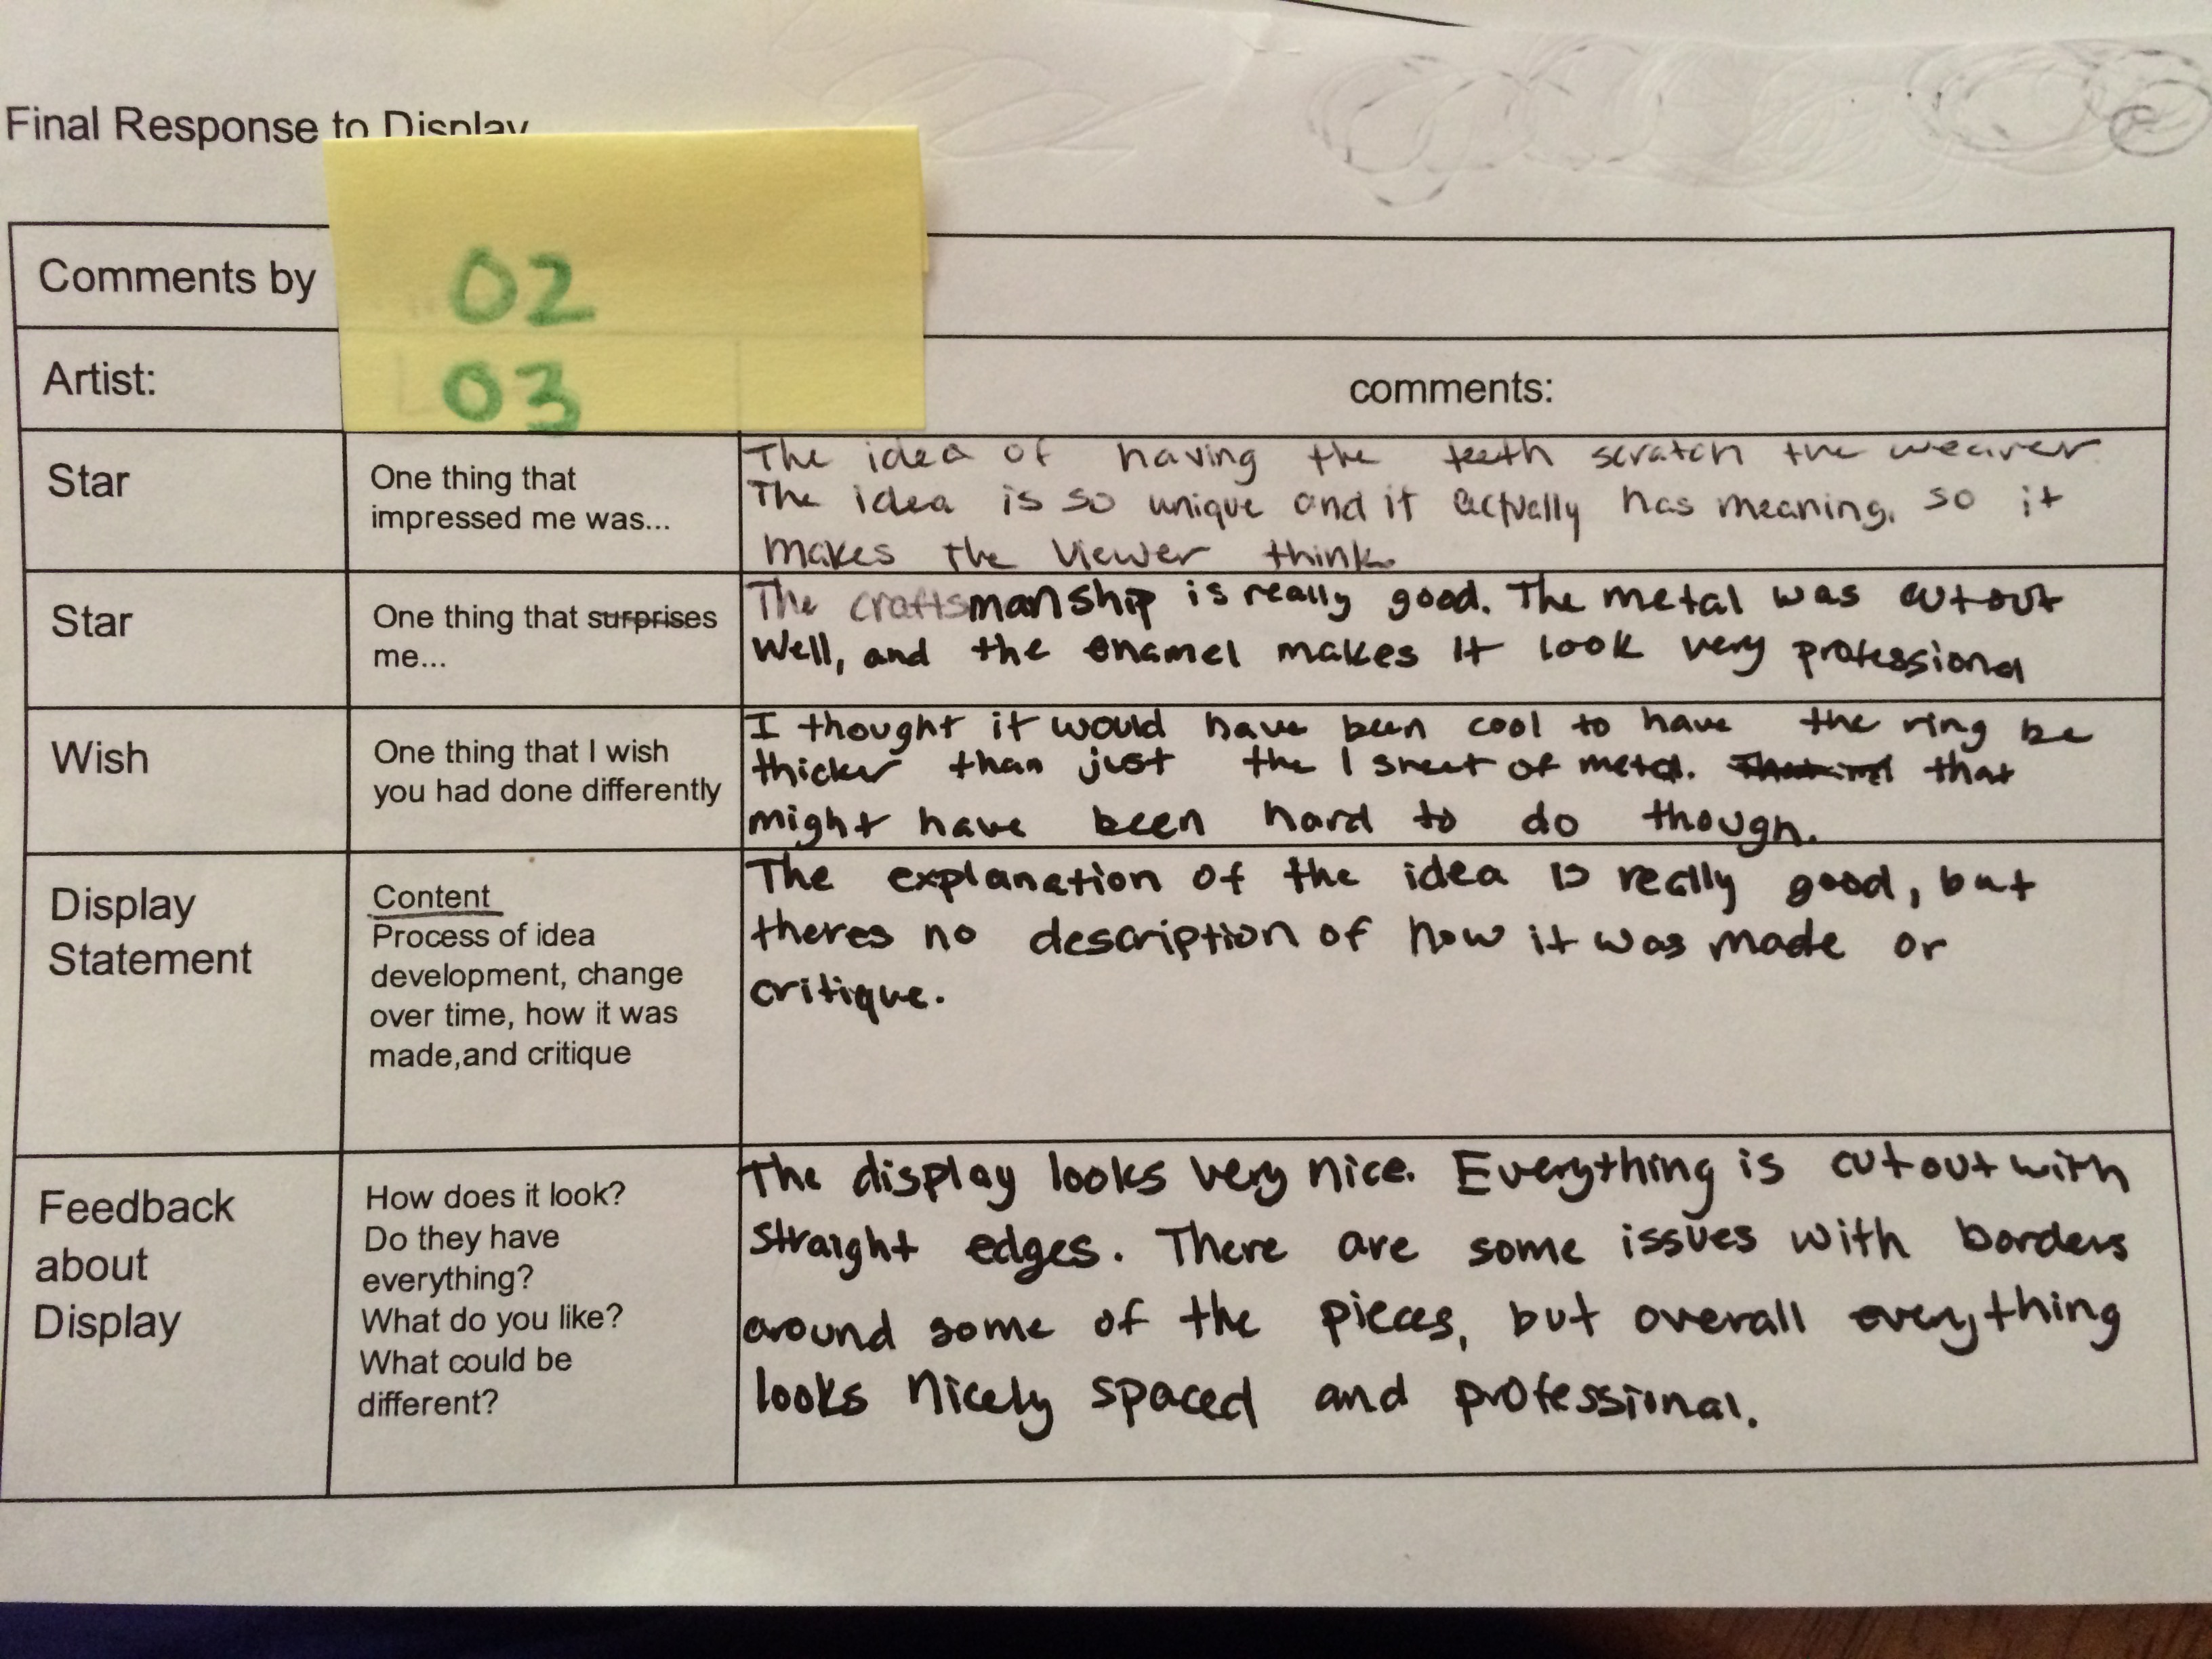 Final Response to Display
Comments by
02
Artist:
03
comments:
Star
One thing that
impressed me was...
The idea of having the teeth scratch the wearer.
The idea is so unique and it actually has meaning, so it
makes the viewer think.
Star
One thing that surprises
me...
The craftsmanship is really good. The metal was cutout
Well, and the enamel makes it look very professional
Wish
One thing that I wish
you had done differently
I thought it would have been cool to have the ring be
thicker than just the 1 sheet of metal. that
might have been hard to do though.
Display
Statement
Content
Process of idea
development, change
over time, how it was
made,and critique
The explanation of the idea is really good, but
theres no description of how it was made or
critique.
Feedback
about
Display
How does it look?
Do they have
everything?
What do you like?
What could be
different?
The display looks very nice. Everything is cutout with
straight edges. There are some issues with borders
around some of the pieces, but overall everything
looks nicely spaced and professional.